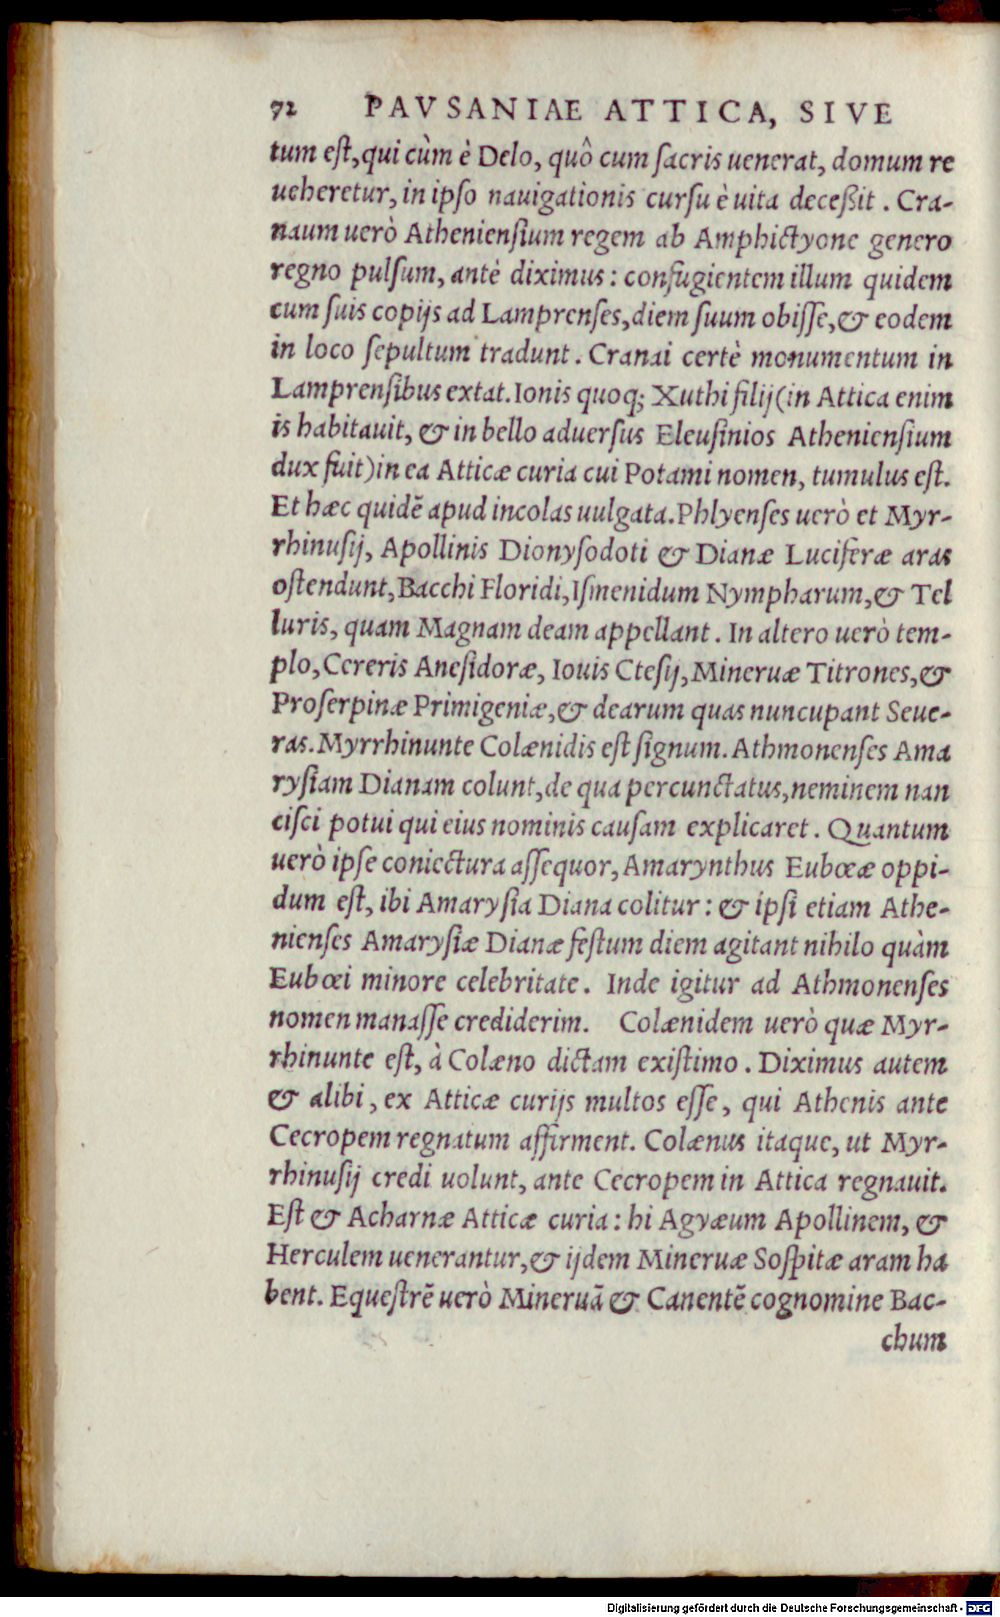 72 PAVSANIAE ATTICA, SIVE
tum eſt, qui cùm è Delo, quô cum ſacris uenerat, domum re
ueheretur, in ipſo nauigationis curſu è uita deceßit. Cra-
naum uerò Athenienſium regem ab Amphictyone genero
regno pulſum, antè diximus: confugientem illum quidem
cum ſuis copijs ad Lamprenſes, diem ſuum obiſſe, & eodem
in loco ſepultum tradunt. Cranai certè monumentum in
Lamprenſibus extat. Ionis quoq; Xuthi filij (in Attica enim
is habitauit, & in bello aduerſus Eleuſinios Athenienſium
dux fuit) in ea Atticæ curia cui Potami nomen, tumulus eſt.
Et hæc quidē apud incolas uulgata. Phlyenſes uerò et Myr-
rhinuſij, Apollinis Dionyſodoti & Dianæ Luciferæ aras
oſtendunt, Bacchi Floridi, Iſmenidum Nympharum, & Tel
luris, quam Magnam deam appellant. In altero uerò tem-
plo, Cereris Aneſidoræ, Iouis Cteſij, Mineruæ Titrones, &
Proſerpinæ Primigeniæ, & dearum quas nuncupant Seue-
ras. Myrrhinunte Colænidis eſt ſignum. Athmonenſes Ama
ryſiam Dianam colunt, de qua percunctatus, neminem nan
ciſci potui qui eius nominis cauſam explicaret. Quantum
uerò ipſe coniectura aſſequor, Amarynthus Eubœæ oppi-
dum eſt, ibi Amaryſia Diana colitur: & ipſi etiam Athe-
nienſes Amaryſiæ Dianæ feſtum diem agitant nihilo quàm
Eubœi minore celebritate. Inde igitur ad Athmonenſes
nomen manaſſe crediderim. Colænidem uerò quæ Myr-
rhinunte eſt, à Colæno dictam exiſtimo. Diximus autem
& alibi, ex Atticæ curijs multos eſſe, qui Athenis ante
Cecropem regnatum affirment. Colænus itaque, ut Myr-
rhinuſij credi uolunt, ante Cecropem in Attica regnauit.
Eſt & Acharnæ Atticæ curia: hi Agyæum Apollinem, &
Herculem uenerantur, & ijdem Mineruæ Soſpitæ aram ha
bent. Equeſtrē uerò Mineruā & Canentē cognomine Bac-
chum
Digitalisierung gefördert durch die Deutsche Forschungsgemeinschaft - DFG